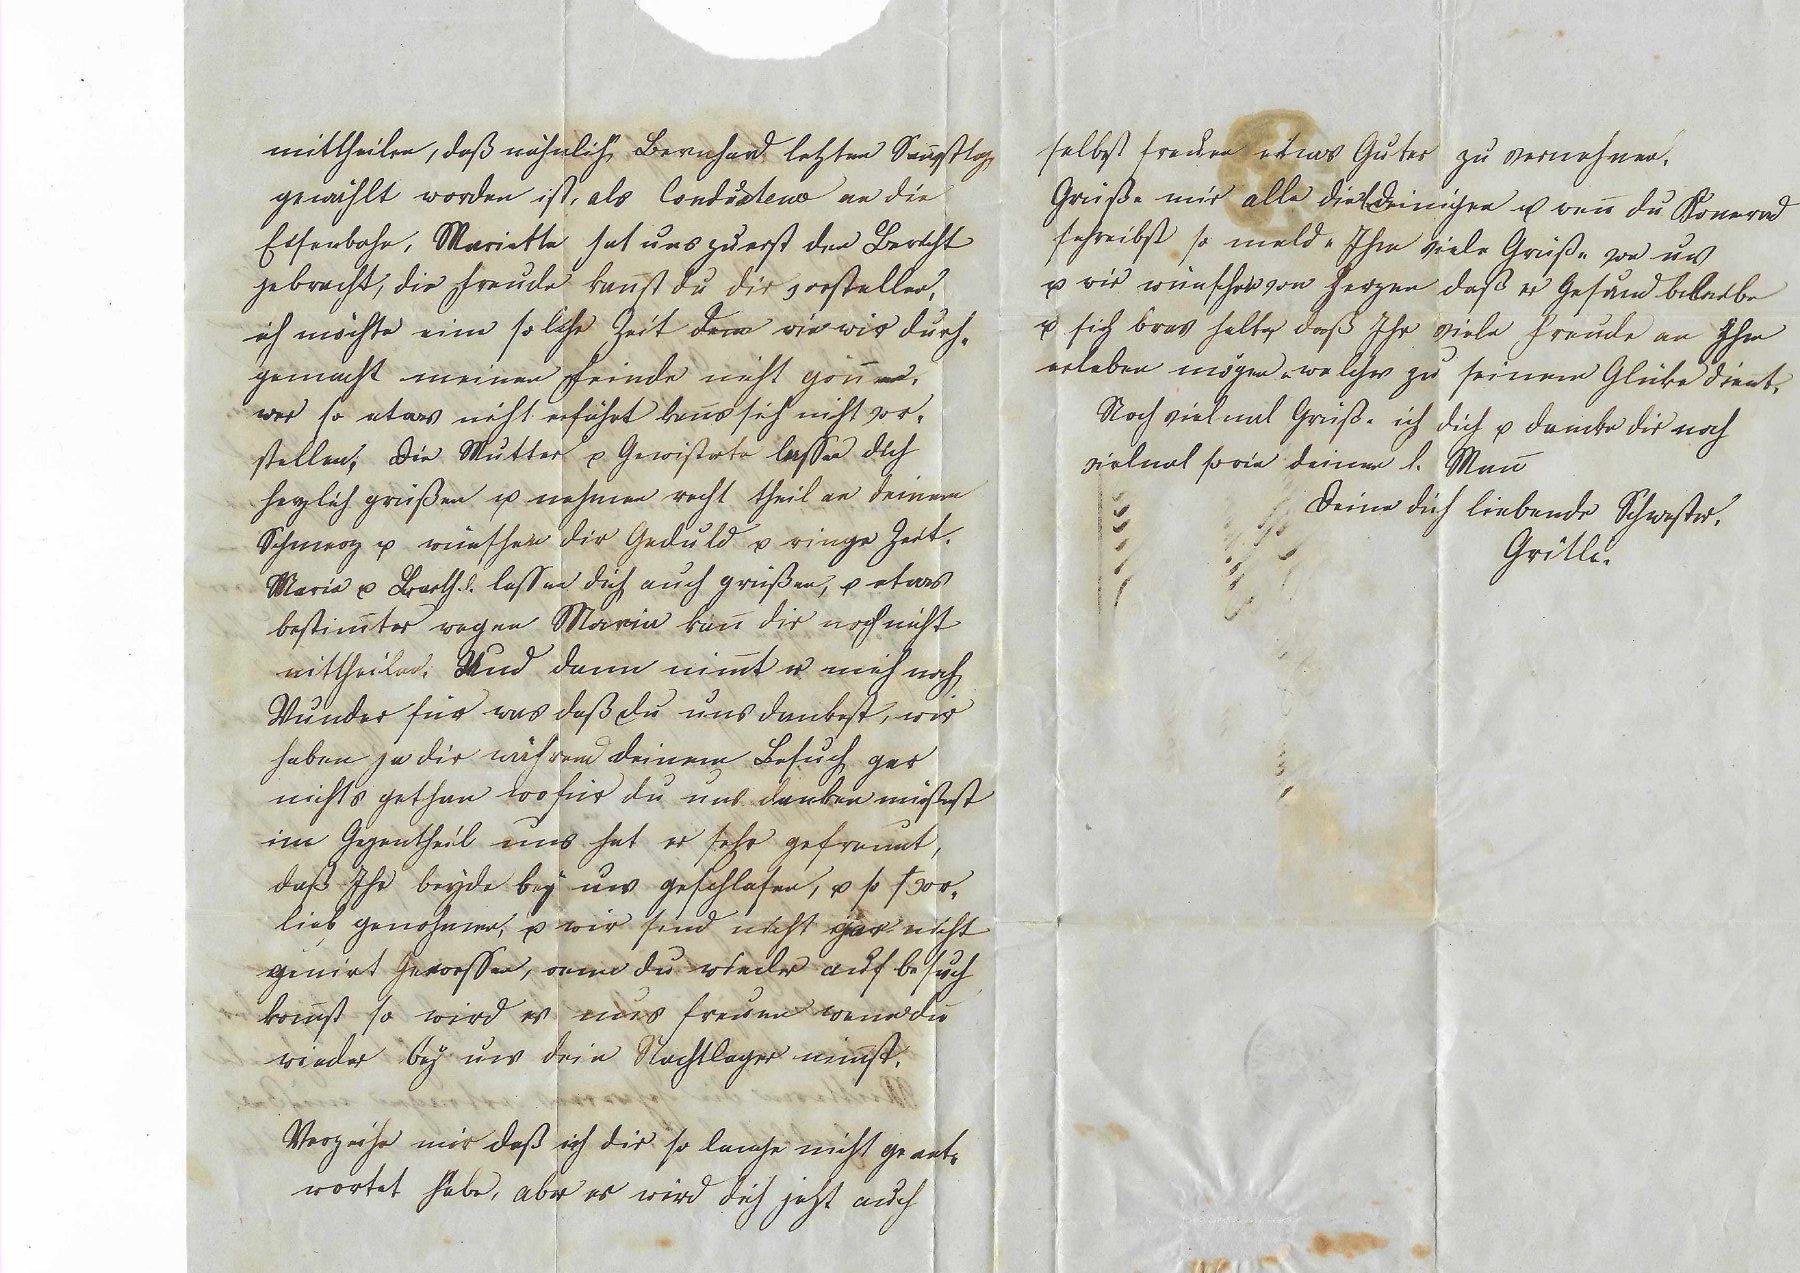 mittheilen, daß nähmlich Bernhard letzten Samstag
gewählt worden ist, als Conducteur an die
Eisenbahn, Mariette hat uns zuerst den Bericht
gebracht, die Freude kannst du dir vorstellen,
ich möchte eine solche Zeit dem wie wir durch-
gemacht meinem Feinde nicht gönnen.
wer so etwas nicht erfährt kann sich nicht vor-
stellen, die Mutter u Gewistrte lassen dich
herzlich grüßen u nehmen recht theil an deinem
Schmerz u wünschen dir Geduld u ringe Zeit.
Marie u lassen dich auch grüßen, u etwas
bestimtes wegen Marie kann dir noch nicht
mittheilen. Und dann nimt es mich noch
Wunder für was daß du uns dankest, wir
haben ja dir während deinem Besuch gar
nichts gethan wofür du uns danken müßtest
im Gegentheil uns hat es sehr gefreuut,
daß Ihr beyde bey uns geschlafen, u so vor-
lieb genohmen, u wir sind nicht gar nicht
genirt gewessen, wenn du wieder auf besuch
komst so wird es uns freuen wenn du
wieder bey uns dein Nachtlager nimst.
Verzeihe mir daß ich dir so lange nicht geant-
wortet habe, aber es wird dich jetzt auch
selbst freuen etwas Gutes zu vernehmen.
Grüße mir alle die deinigen u wenn du Konerad
schreibst so melde Ihm viele Grüße von uns
u wir wünschen von Herzen daß er Gesund bleibe
u sich brav halte daß Ihr viele Freude an Ihm
erleben möget, welches zu seinem Glüke dient.
Noch viel mal Grüße ich dich u danke dir noch
vielmal sowie deinem l. Mann
Deine dich liebende Schwester.
Gritli.